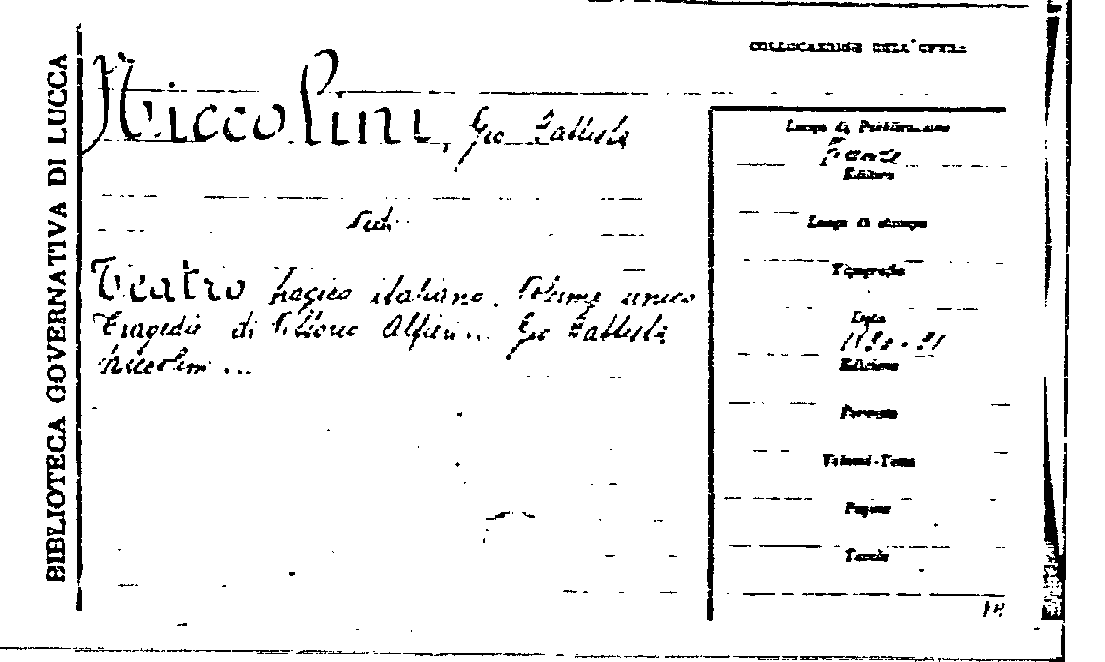 BIBLIOTECA GOVERNATIVA DI LUCCA
COLLOCAZIONE DELL'OPERA
Niccolini, Gio Battista
Vedi
Teatro tragico italiano. Volume unico
Tragedie di Vittorio Alfieri... Gio Battista
Niccolini ...
Luogo di Pubblicazione
Firenze
Editore
Luogo di stampa
Tipografo
Data
Edizione
Formato
Volumi-Tomi
Pagine
Tavole